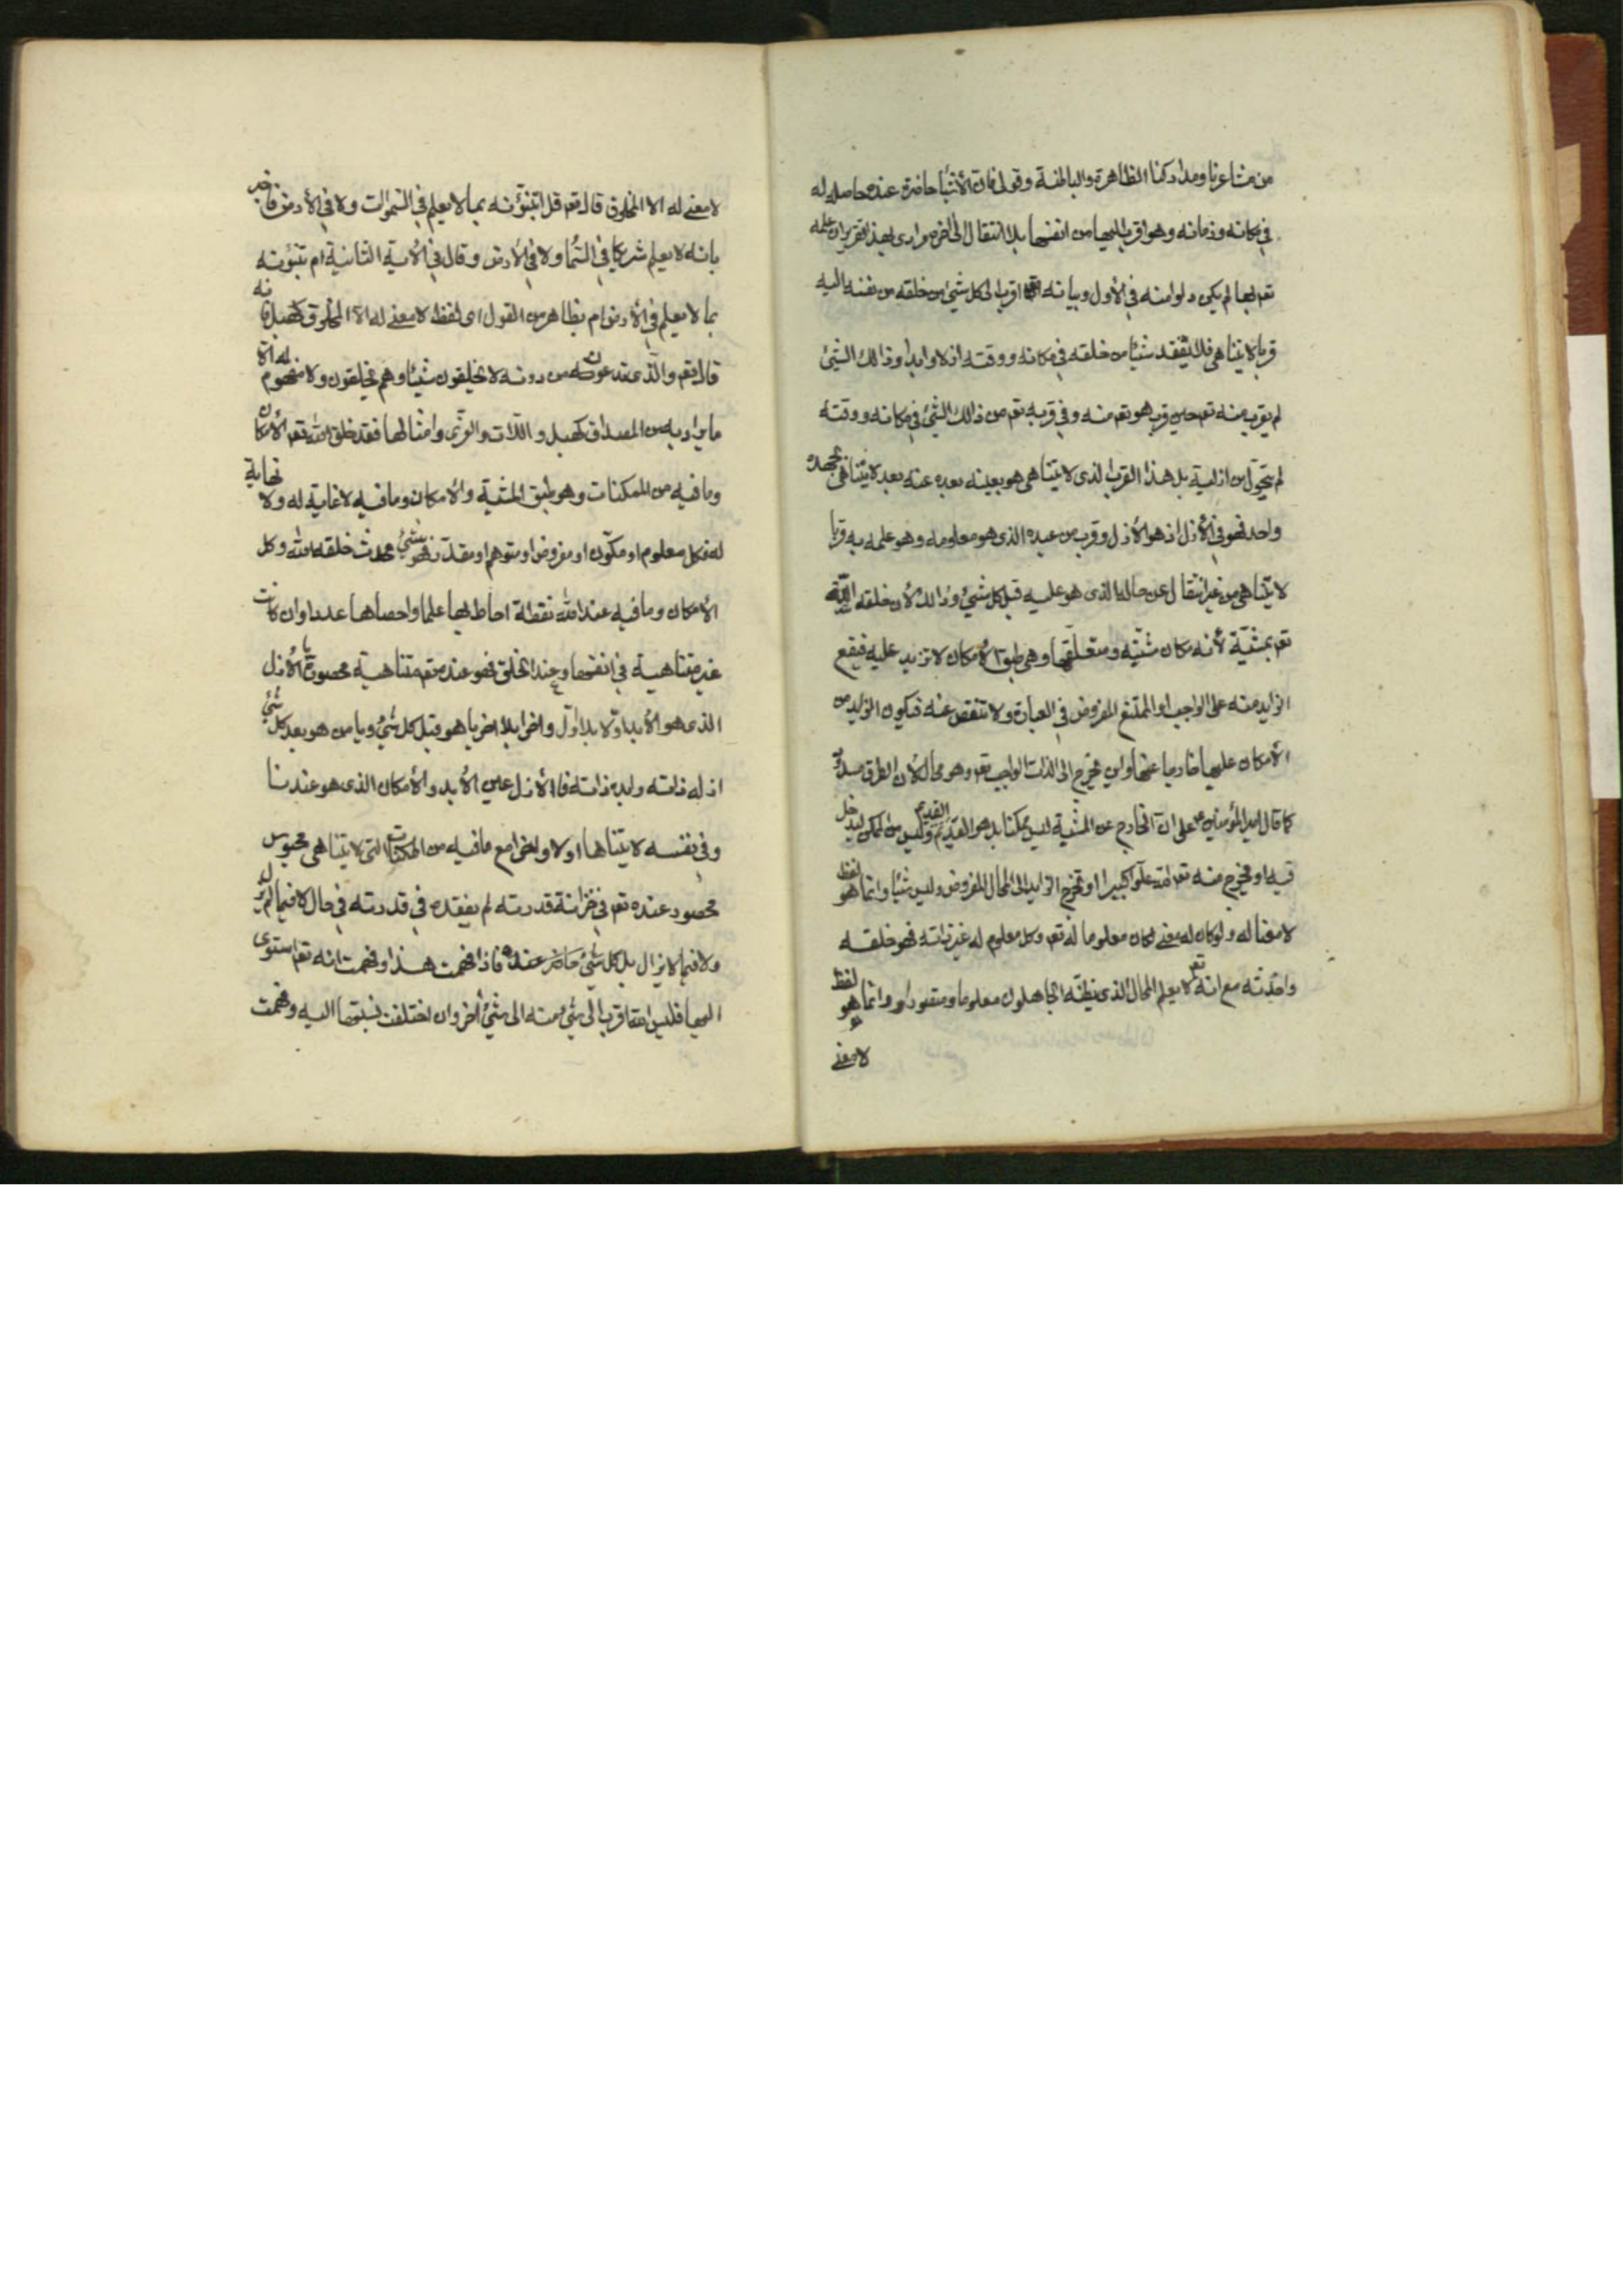 من مشاعرنا ومداركنا الظاهرة والباطنة وقولى فان الأشيآء حاضرة عنده حاصله له
فى مكانه وزمانه وهو اقرب اليها من انفسها بلا انتقال الى اخره مرادى بهذا تقريران علمه
تعم بها لم يكن دلوا منه فى الأول وبيانه انه اقرب الى كل شئ من خلقه من نفسه اليه
قربا لايتناهى فلا يفقد شيئا من خلقه فى مكانه ووقته ازلا وابدا وذالك الشئ
لم يقرب منه تعم حين قرب هو تعم منه وفى قربه تعم من ذالك الشئ فى مكانه ووقته
لم يتحول من ازليته بل هذا القرب الذى لايتناهى هو بعينه بعده عنه بعد لايتناهى بجهة
واحد فهو فى الأزل اذ هو الأزل وقرب من عبده الذى هو معلومه وهو علمه به قربا
لايتناهى من غير انتقال عن حاله الذى هو عليه قبل كل شئ وذالك لأن خلقه الله
تعم بمشيّة لأنه مكان مشيته ومتعلقها وهى طبق الأمكان لاتزيد عليه فيقع
الزايد منه على الواجب او الممتنع المفروض فى العبارة ولا تنقص عنه فيكون الزايد من
الأمكان عليها خارجا عنها واين يخرج الى الذات الواجب تعم وهو محال لأن الطرق مسدود
كما قال امير المؤمنين ع على ان الخارج عن المشية ليس ممكنا بل هو القديم وليس من الممكن ليدخل
فيه او يخرج منه تعم الله علوا كبيرا او تخرج الزايد الى المحال المفروض وليس شيئا وانما هو لفظ
لامعنا له ولو كان له معنى لكان معلوما له تعم وكل معلوم له غير ذاته فهو خلقه
واحدثه مع انه تعم لايعلم المحال الذى يظنه الجاهلون معلوما ومتصورا وانما هو لفظ
لامعنى
لامعنى له الا المخلوق قال تعم قل اتنبؤنه بما لايعلم فى السموات ولا فى الأرض فاخبر
بانه لايعلم شريكا فى السمآء ولا فى الأرض وقال فى الأية الثانية ام تنبؤنه
بما لايعلم فى الأرض ام بظاهر من القول اى لفظ لامعنى له الا المخلوق كهبل فانه
قال تعم والذى تدعون من دونه لايخلقون شيئا وهم يخلقون ولا مفهوم له الا
مايراد به من المصداق كهبل واللات والعزى وامثالها فقد خلق الله تعم الأمكان
ومافيه من الممكنات وهو طبق المشية والأمكان ومافيه لاغاية له ولا نهاية
له فكل معلوم او مكون او مفروض او متوهم او مقدر فهو شئ محدث خلقه الله وكل
الأمكان ومافيه عند الله نقطة احاط بها علما واحصاها عددا وان كانت
غير متناهية فى انفسها وعند الخلق فهو عنده تعم متناهية محصورة بالأزل
الذى هو الأبد اولا بلا اول واخرا بلا اخر يا هو قبل كل شئ ويا من هو بعد كل شئ
ازله ذاته وابده ذاته فالأزل عين الأبد والأمكان الذى هو عندنا
وفى نفسه لايتناها اولا واخرا مع مافيه من الممكنات التى لايتناهى محبوس
محصور عنده تعم فى خزانة قدرته لم يفقده فى قدرته فى حال لا فيما لم يزل
ولا فيما لايزال بل كل شئ حاضر عنده فاذا فهمت هذا وفهمت انه تعم استوى
اليها فليس احقا قرب الى شئ منه الى شئ اخر وان اختلفت نسبتها اليه وفهمت